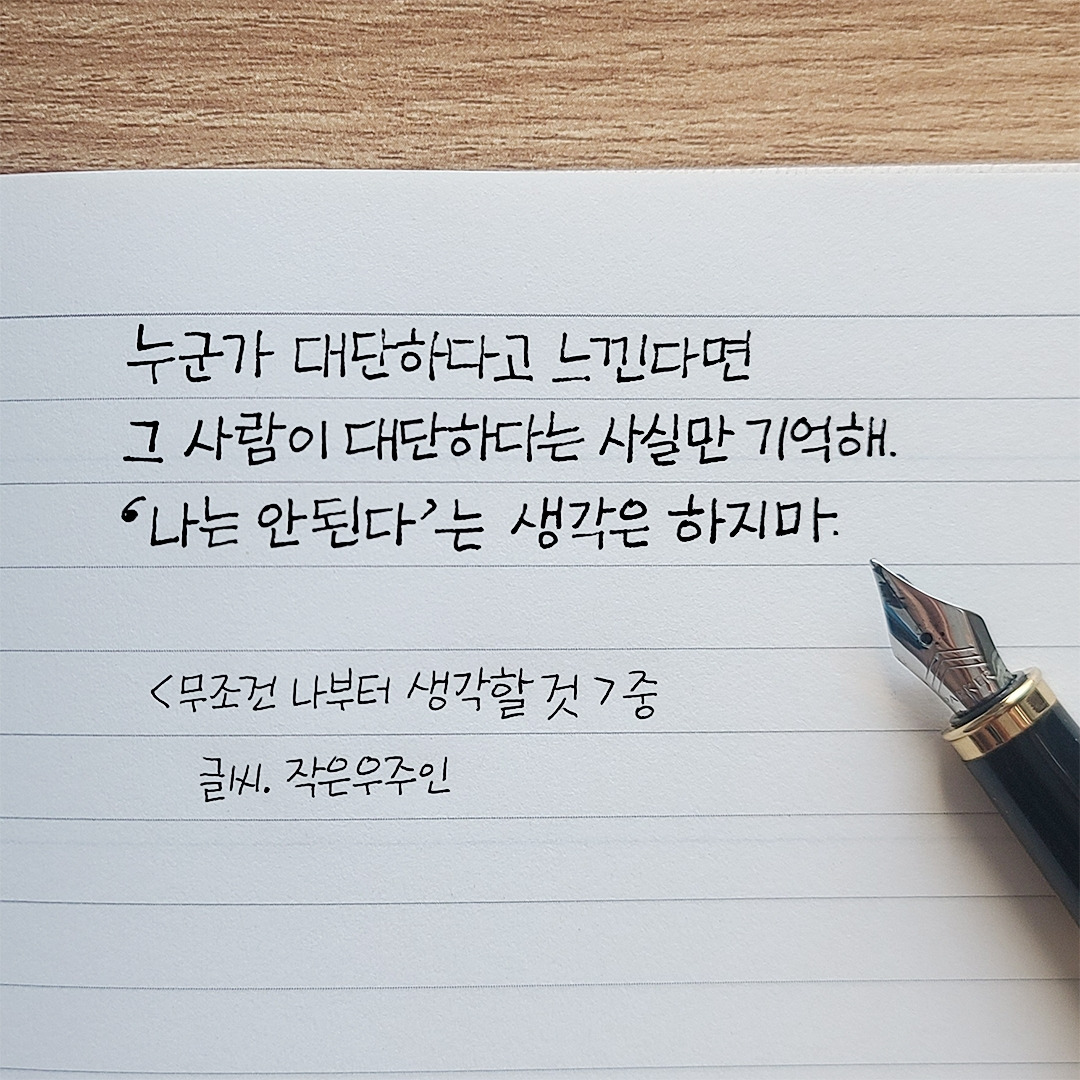 누군가 대단하다고 느낀다면
그 사람이 대단하다는 사실만 기억해.
‘나는 안된다’는 생각은 하지마.
<무조건 나부터 생각할 것>중
글씨. 작은우주인